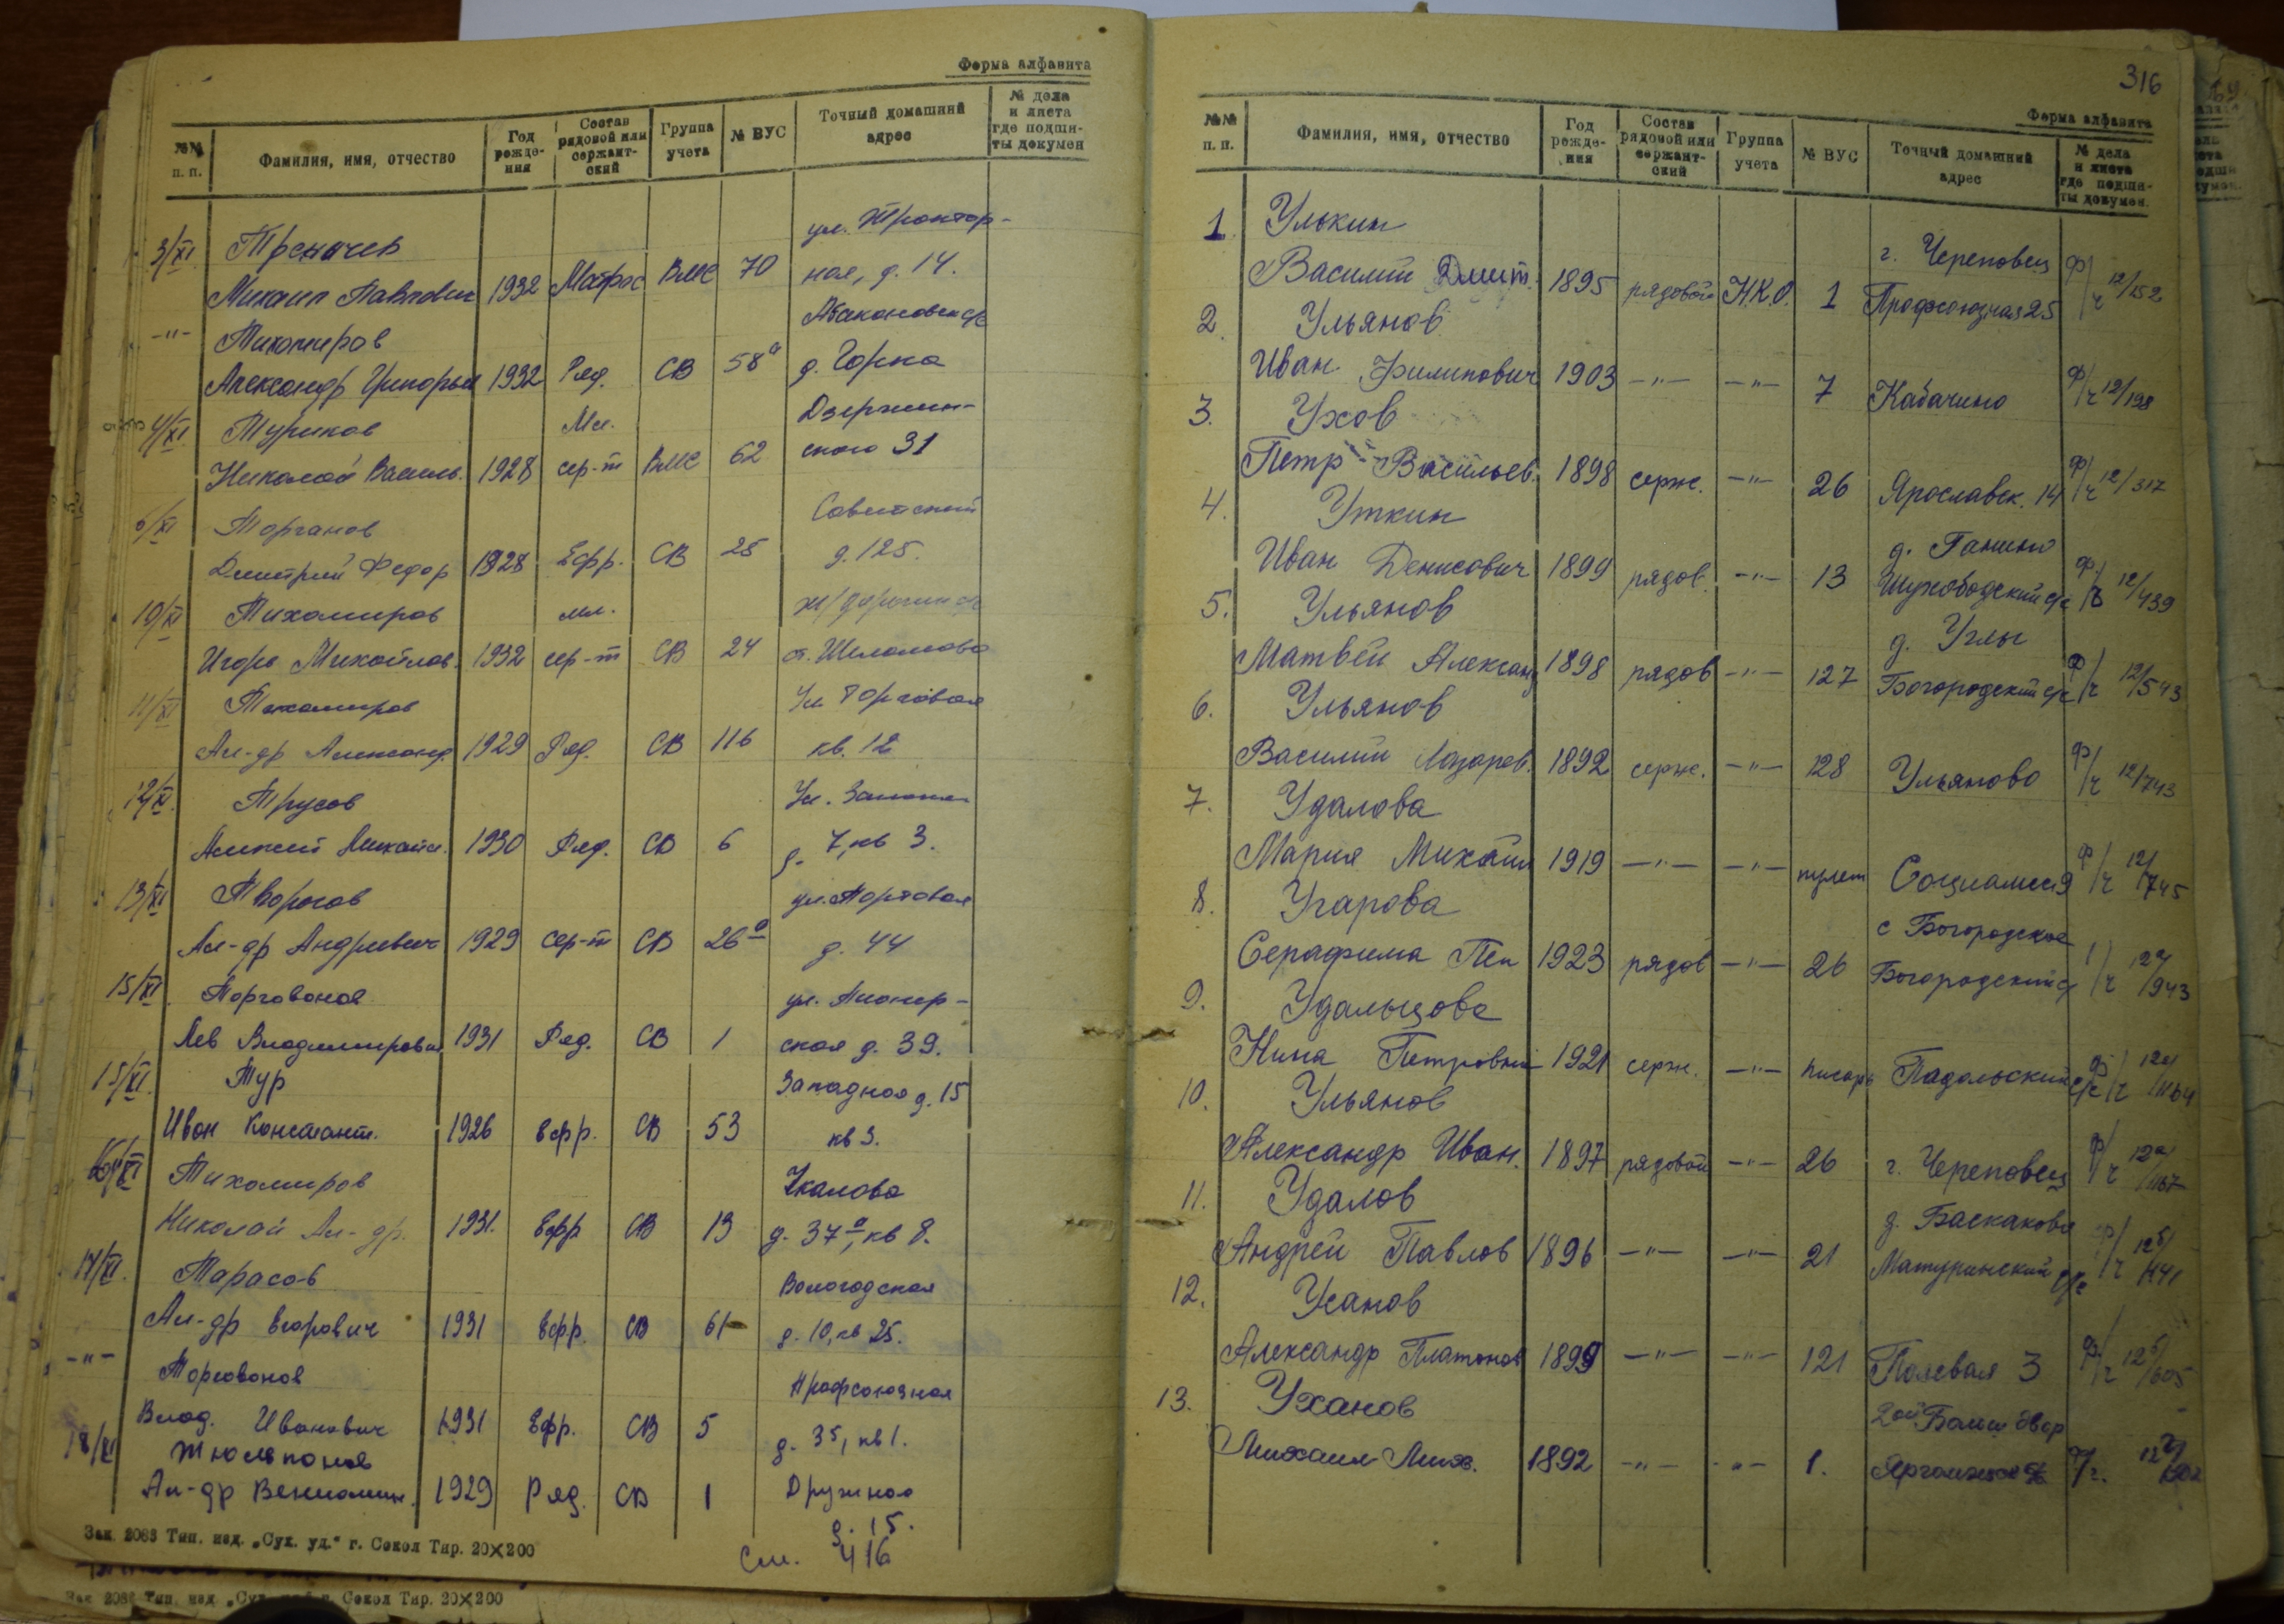 Форма алфавита
№№ п. п. Фамилия, имя, отчество Год рождения Состав рядовой или сержантский Группа учета № ВУС Точный домашний адрес № дела и листа где подшиты докумен
3/XI ул. Трактор-
Михаил Павлович 1932 Матрос ВМС 70 ная, д. 14.
-"- Тихомиров
Александр Григорьев 1932 Ряд. СВ 58а д. Горка
4/XI Туриков Мл. Дзержин-
Николай Василь. 1928 сер-т ВМС 62 ского 31
6/XI Торганов Советский
Дмитрий Федор 1928 Ефр. СВ 25 д. 125.
10/XI Тихомиров мл.
Игорь Михайлов. 1932 сер-т СВ 24 ст. Шеломово
11/XI Тихомиров Ул Торговая
Ал-др Александ. 1929 Ряд. СВ 116 кв. 12
12/XI. Трусов Ул.
Алексей Михайл. 1930 Ряд. СВ 6 д. 7, кв 3.
13/XI Творогов ул.
Ал-др Андреевич 1929 сер-т СВ 26а д. 44
15/XI. Торгованов ул. Пионер-
Лев Владимирович 1931 Ряд. СВ 1 ская д. 39.
15/XI. Тур Западная д. 15
Иван Констант. 1926 ефр. СВ 53 кв 3.
Тихомиров Чкалова
Николай Ал-др. 1931. Ефр СВ 13 д. 37а, кв 8.
17/XI. Тарасов Вологодская
Ал-др Егорович 1931 Ефр. СВ 61 д. 10, кв 25.
-"- Торгованов Профсоюзная
Влад. Иванович 1931 Ефр. СВ 5 д. 35, кв 1.
18/XI Тюляпонов
Ал-др Вениамин. 1929 Ряд. СВ 1 Дружная
д. 15.
См. 416
Зак. 2083 Тип. изд. „Сух. уд." г. Сокол Тир. 20×200
Зак 2083 Тип. изд „Сух. г. Сокол Тир. 20×200
316
Форма алфавита
№№ п. п. Фамилия, имя, отчество Год рождения Состав рядовой или сержантский Группа учета № ВУС Точный домашний адрес № дела и листа где подшиты докумен.
1. Улькин г. Череповец
Василий Дмит. 1895 рядовой Н.К.О. 1 Профсоюзная 25 ф/ч 12/152
2. Ульянов
Иван Филипович 1903 -"- -"- 7 Кабачино ф/ч 12/198
3. Ухов
Петр Васильев. 1898 серж. -"- 26 Ярославск. 14 ф/ч 12/317
4. Уткин д. Ганино
Иван Денисович 1899 рядов. -"- 13 Шухободский с/с ф/ч 12/439
5. Ульянов д. Углы
Матвей Александ 1898 рядов -"- 127 Богородский с/с ф/ч 12/543
6. Ульянов
Василий Лазарев. 1892 серж. -"- 128 Ульяново ф/ч 12/743
7. Удалова
Мария Михаил 1919 -"- -"- пулем Социалис 9 ф/ч 12/745
8. Угарова с Богородское
Серафима Пен 1923 рядов -"- 26 Богородский с/ 12а/943
9. Удальцова
Нина Петровна 1921 серж. -"- писарь Падольский с/с ф/ч 12а/1164
10. Ульянов
Александр Иван. 1897 рядовой -"- 26 г. Череповец ф/ч 12а/1167
11. Удалов д. Баскаково
Андрей Павлов 1896 -"- -"- 21 Матуринский с/с ф/ч 12б/141
12. Усанов
Александр Платонов 1899 -"- -"- 121 Полевая 3 ф/ч 12б/605
13. Уханов 2ой Больш двор
Михаил Мих. 1892 -"- -"- 1.